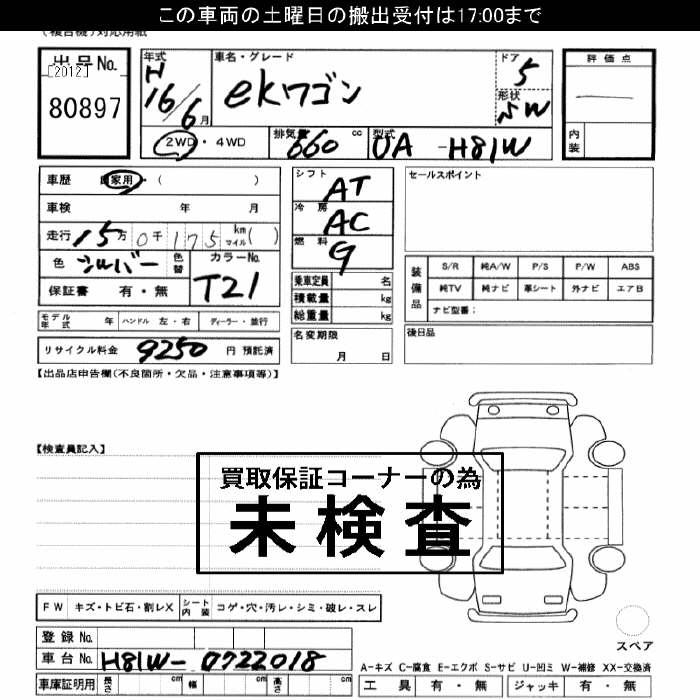 この車両の土曜日の搬出受付は17:00まで
(複合機)対応用紙
出品No.
[2012]
80897
年式
H
16/6月
車名・グレード
ekワゴン
ドア
5
形状
SW
評価点
内装
2WD・4WD
排気量
660
cc
型式
UA-H81W
車歴 自家用・( )
車検 年 月
走行 15万0千175 km マイル( )
色 シルバー 色替
カラーNo.
T21
保証書 有・無
モデル年式 年 ハンドル 左・右 ディーラー・並行
リサイクル料金 9250 円 預託済
シフト
AT
冷房
AC
燃料
G
乗車定員 名
積載量 kg
総重量 kg
名変期限
月 日
セールスポイント
装備品
S/R 純A/W P/S P/W ABS
純TV 純ナビ 革シート 外ナビ エアB
ナビ型番:
後日品
【出品店申告欄(不良箇所・欠品・注意事項等)】
【検査員記入】
買取保証コーナーの為
未検査
FW キズ・トビ石・割レX シート内装 コゲ・穴・汚レ・シミ・破レ・スレ
登録No.
車台No. H81W-0722018
車庫証明用 長さ cm 幅 cm 高さ cm
スペア
A-キズ C-腐食 E-エクボ S-サビ U-凹ミ W-補修 XX-交換済
工具 有・無 ジャッキ 有・無